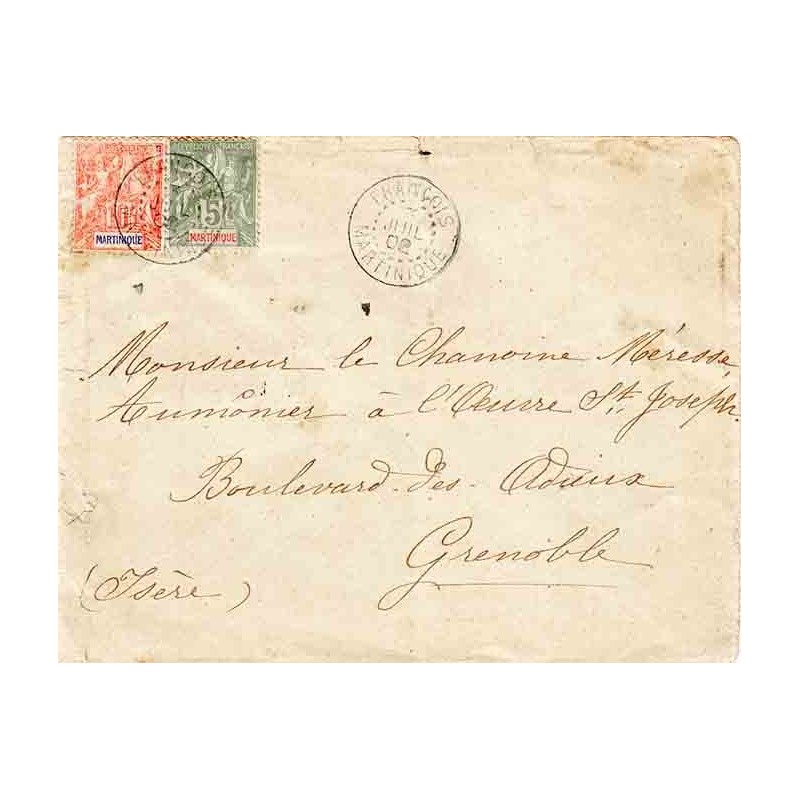 MARTINIQUE
15
MARTINIQUE
FRANÇOIS
JUIL
02
MARTINIQUE
Monsieur le Chanoine Méresse,
Aumônier à l'Œuvre St. Joseph.
Boulevard-des-Adieux
Grenoble
(Isère)